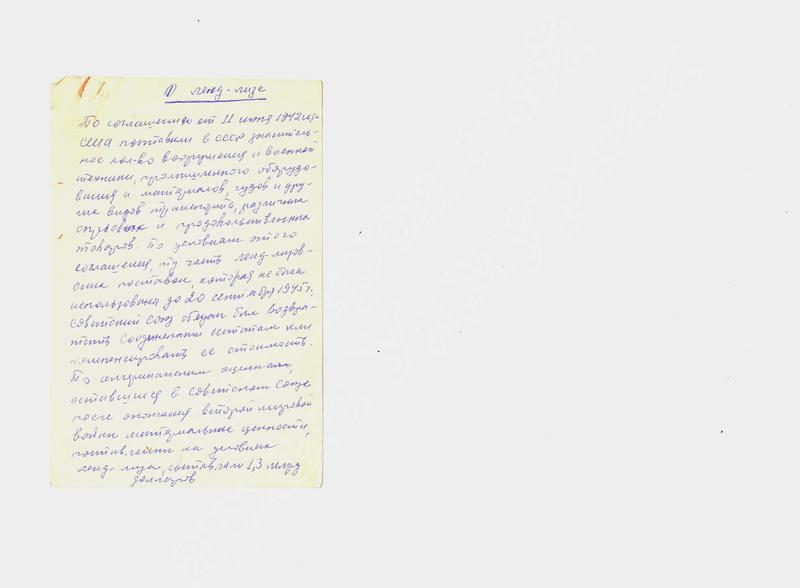 О ленд-лизе
По соглашению от 11 июня 1942 года
США поставили в СССР значитель-
ное кол-во вооружения и военной
техники, промышленного оборудо-
вания и материалов, судов и дру-
гих видов транспорта, различных
сырьевых и продовольственных
товаров. По условиям этого
соглашения, ту часть ленд-лизов-
ских поставок, которая не была
использована до 20 сентября 1945 г.
Советский Союз обязан был возвра-
тить Соединенным Штатам или
компенсировать ее стоимость.
По американским оценкам,
оставшиеся в Советском Союзе
после окончания второй мировой
войны материальные ценности,
поставленные на условиях
ленд-лиза, составляли 1,3 млрд
долларов